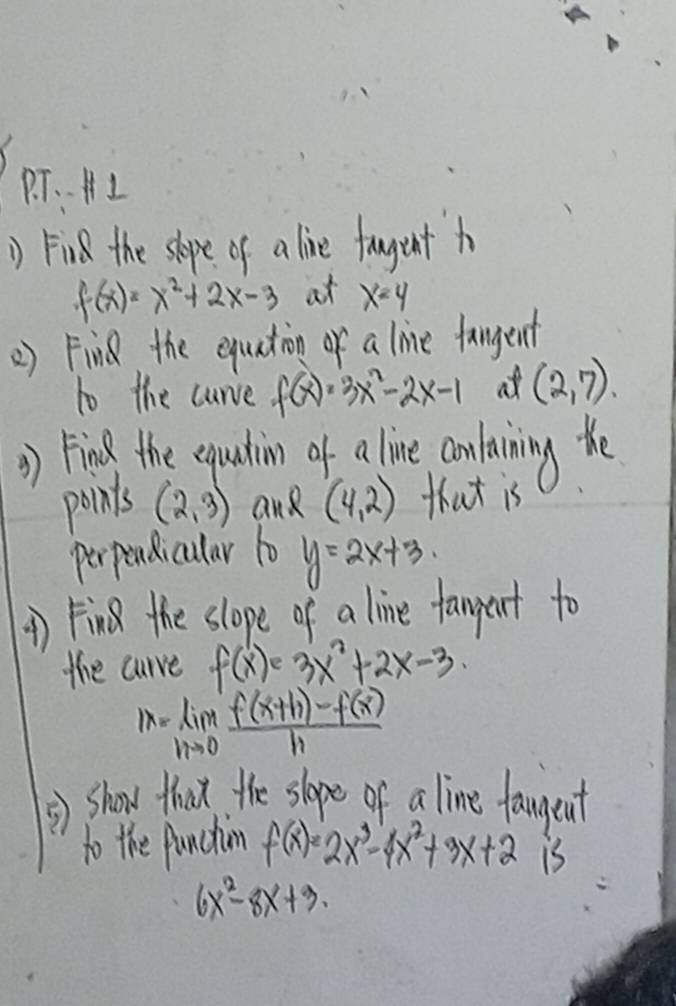 P.T. #1
1) Find the slope of a line tangent to
f(x) = x² + 2x - 3 at x=4
2) Find the equation of a line tangent
to the curve f(x) = 3x² - 2x - 1 at (2,7).
3) Find the equation of a line containing the
points (2,3) and (4,2) that is
perpendicular to y = 2x+3.
4) Find the slope of a line tangent to
the curve f(x) = 3x² + 2x - 3.
m = lim f(x+h) - f(x)
h→0 h
5) Show that the slope of a line tangent
to the function f(x) = 2x³ - 4x² + 3x + 2 is
6x² - 8x + 3.